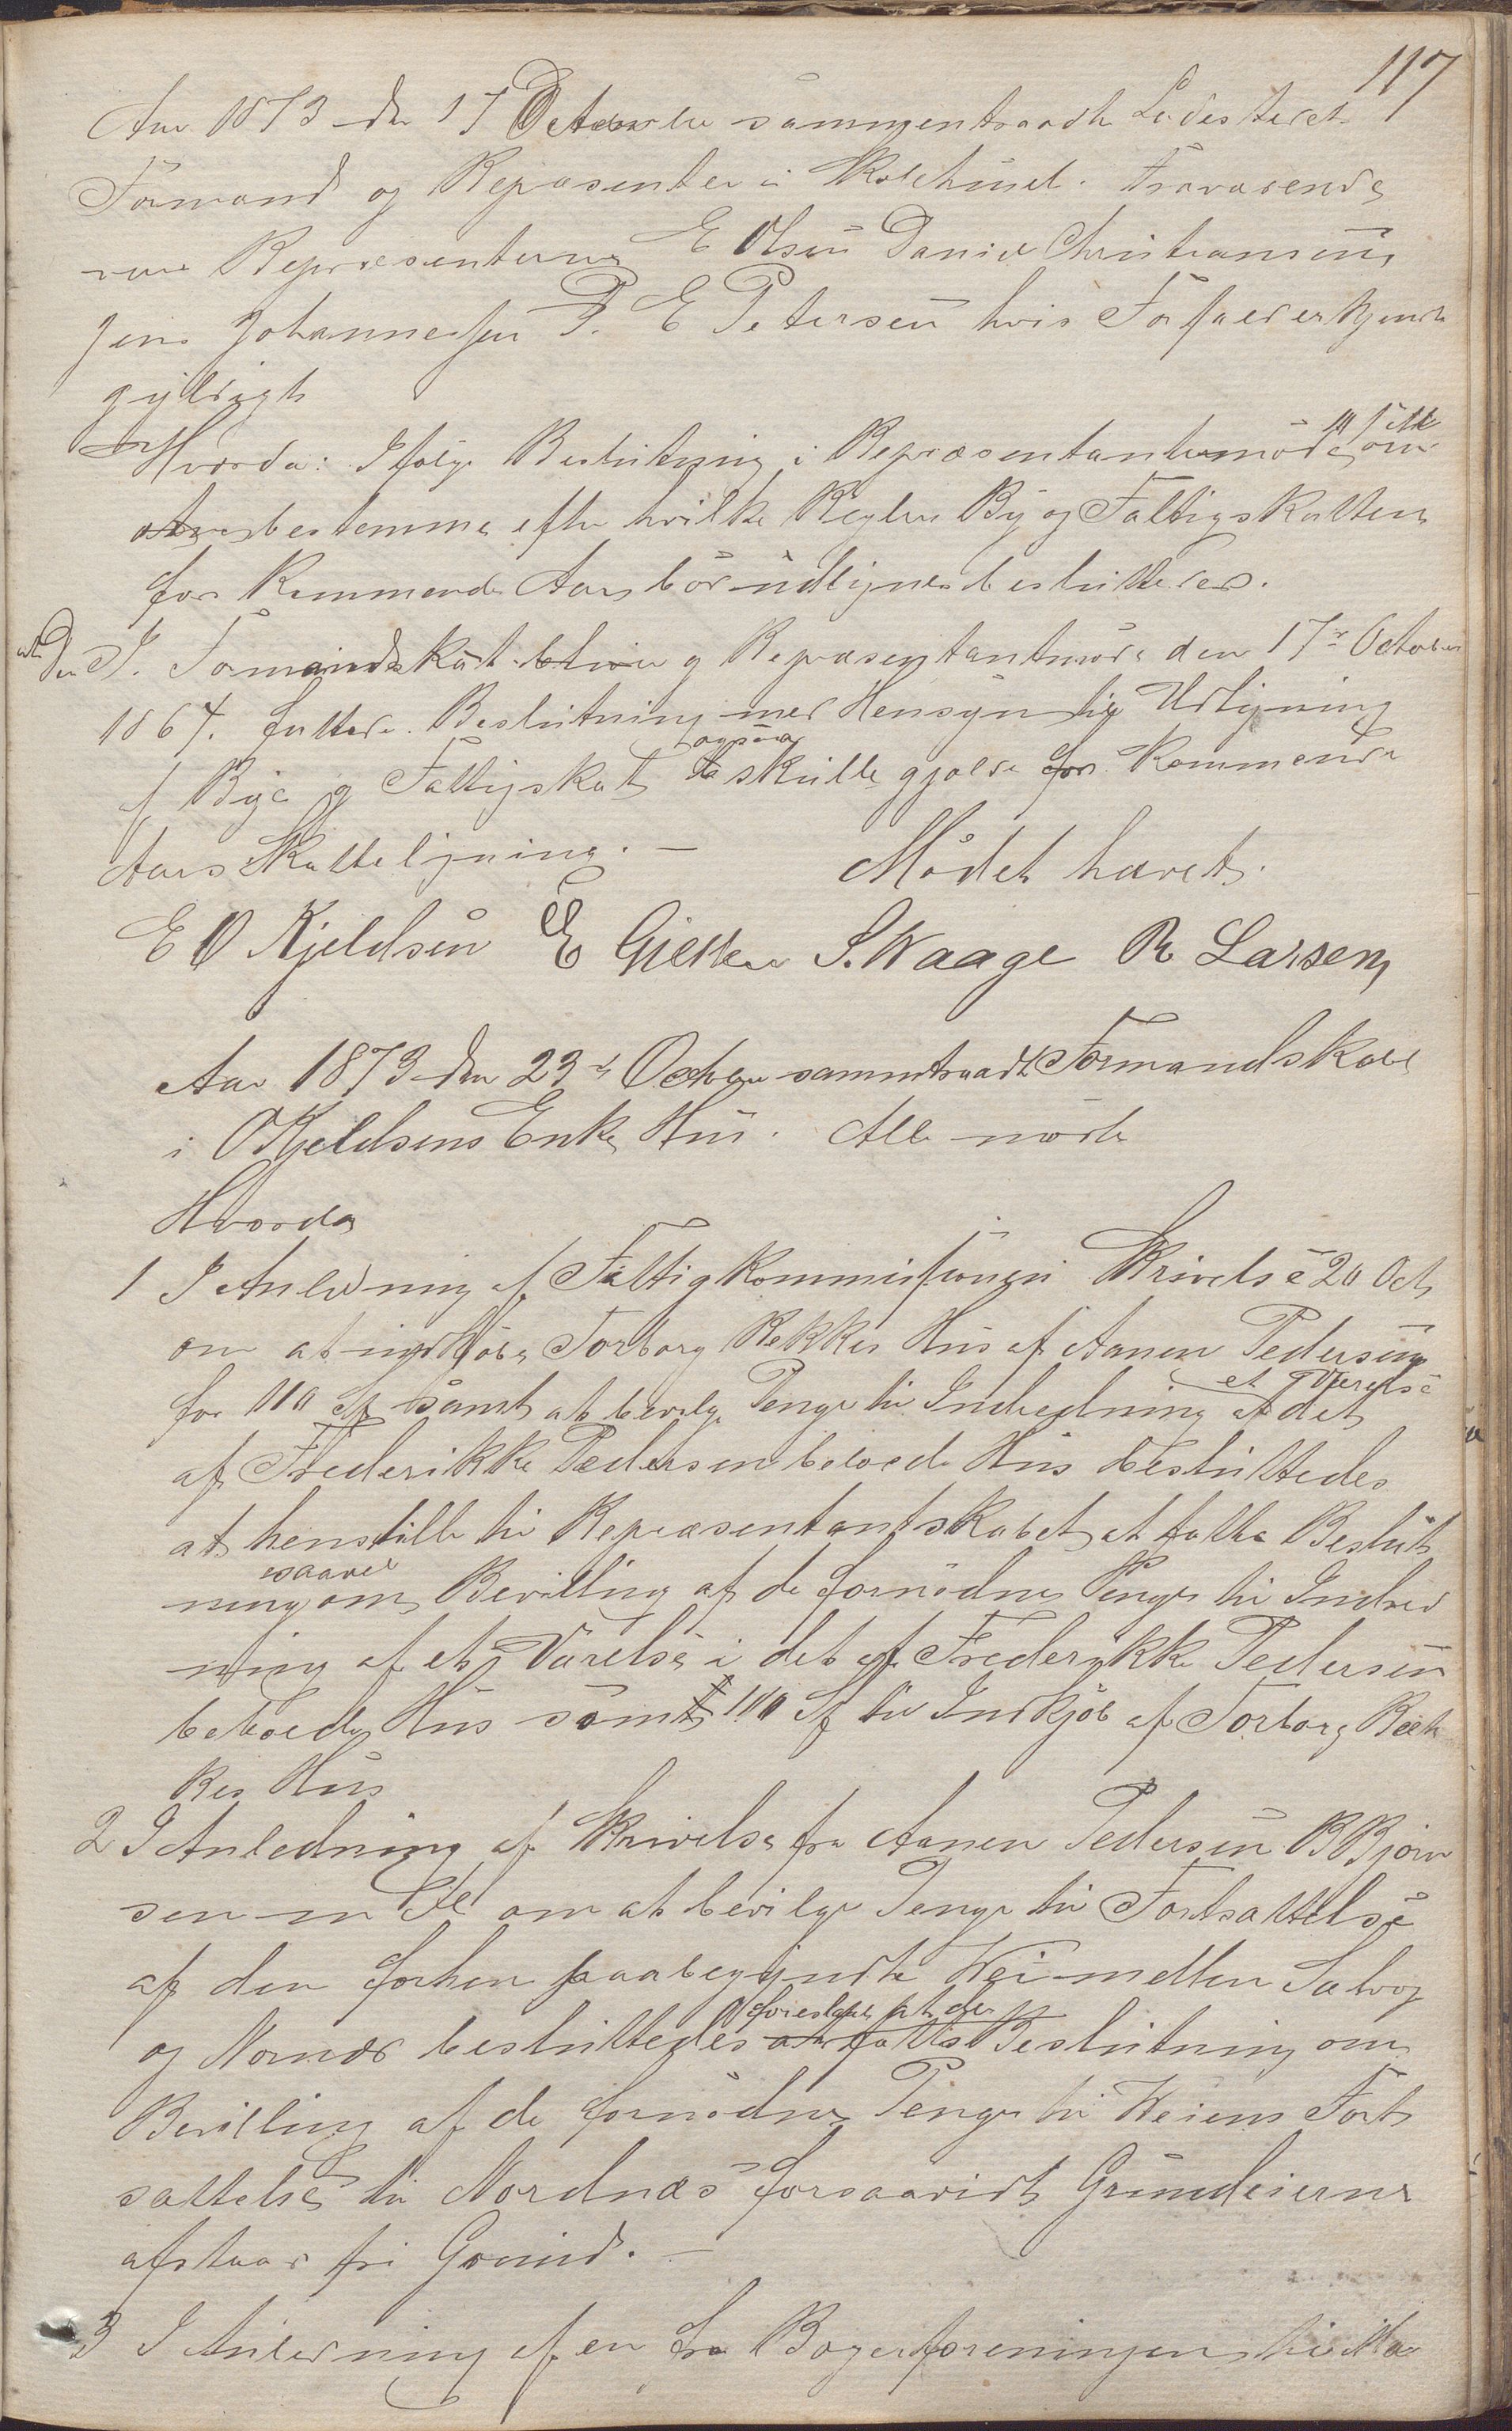 117
Aar 1873 den 17 October sammentraadte Ladestedets
Formænd og Repræsenter i Skolehuset. Fraværende
var Repræsenterne E Olsen Daniel Christiansen,
Jens Johannesen P. E Petersen hvis Forfald erkjendt
gyldigt
Hvorda: Ifølge Beslutning i Repræsentantmøde om
at bestemme efter hvilke Regler By og Fattigskatten
for Kommende Aar bør udlignes besluttedes.
Den I. Formandskabs og Repræsentantmøde den 17de October
1867. fattede Beslutning med Hensyn til Udligning
af Bye og Fattigskat ogsaa skulle gjælde for Kommende
Aars Skatteligning. —    Mødet hævet.
E O Kjeldsen E Gjetten S. Waage R Larsen
Aar 1873 den 23de October sammentraadte Formandskabet
i O Kjeldsens Enkes Hus. Alle mødte
Hvorda
1 I Anledning af Fattigkommissionens Skrivelse 20 Oct
om at indkjøbe Torborg Rekkes Hus af Aanen Pedersen
for 110 Sp samt at bevilge Penge til Indredning af et Værelse i det
af Frederikke Pedersen beboede Hus besluttedes
at henstille til Repræsentantskabet at fatte Beslut
ning om saavel Bevilling af de fornødne Penge til Indred
ning af et Værelse i det af Frederikke Pedersen
beboede Hus som 110 Sp til Indkjøb af Torborg Rek
kes Hus
2 I Anledning af Skrivelse fra Aanen Pedersen B Bjørn
sen m Fl om at bevilge Penge til Fortsættelse
af den forhen paabegyndte Vei mellem Salvog
og Nornæs besluttedes foreslaaet at der fattes Beslutning om
Bevilling af de fornødne Penge til Veiens Fort
sættelse til Nordnæs forsaavidt Grundeierne
afstaar fri Grund. —
3 I Anledning af en fra Borgerforeningen